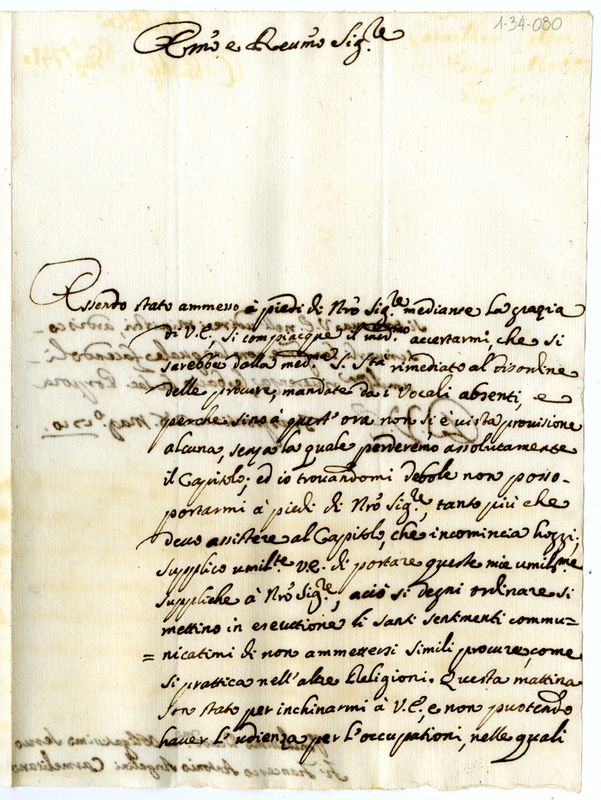 1-34-080
Emo e Reumo Sig.re
Essendo stato ammesso à piedi di Nrõ Sig.re mediante la grazia
di V.E., si compiacque il med.mo accertarmi, che si
sarebbe dalla med.ma S. Stà rimediato al disordine
delle procure, mandate da i Vocali absenti, e
perche sino à quest'ora non si è vista provisione
alcuna, senza la quale perderemo assolutamente
il Capitolo; ed io trovandomi debole non posso
portarmi à piedi di Nrõ Sig.re, tanto più che
devo assistere al Capitolo, che incomincia hozzi;
supplico umil.te V.E. di portare queste mie umil.me
suppliche à Nrõ Sig.re, acciò si degni ordinare si
mettino in esecuttione li santi sentimenti commu=
=nicatimi di non ammettersi simili procure, come
si prattica nell'altre Religioni. Questa mattina
son stato per inchinarmi à V.E., e non puotendo
haver l'udienza per l'occupationi, nelle quali